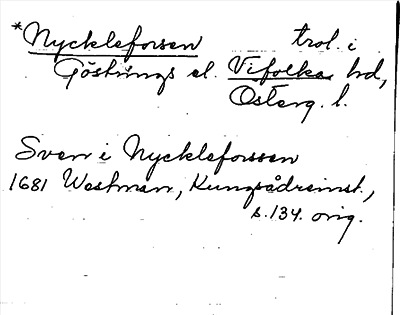 *Nyckleforsen trol. i
Göstrings el. Vifolka hd,
Österg. l.
Sven i Nyckleforssen
1681 Westman, Kungsådreinst.,
s. 134. orig.